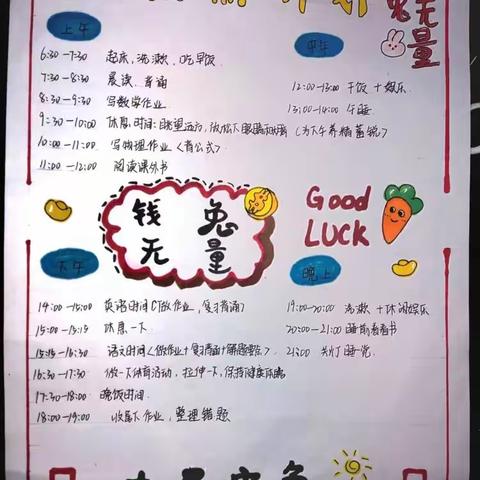 兔无量
上午
6:30—7:30 起床、洗漱、吃早饭
7:30—8:30 晨读、背诵
8:30—9:30 写数学作业
9:30—10:00 休息时间:眺望远方,放松下眼睛和
10:00—11:00 写物理作业(背公式)
11:00—12:00 阅读课外书
中午
12:00—13:00 干饭+娱乐
13:00—14:00 午睡
(为下午养精蓄锐)
钱兔
无量
Good
LUCK
下午
14:00—15:00 英语时间(做作业,复习背诵)
15:00—15:15 休息一下
15:15—16:30 语文时间(做作业+复习背诵+
16:30—17:30 做一下体育活动,拉伸一下,保持健康
17:30—18:00 晚饭时间
18:00—19:00 收尾下作业,整理错题
晚上
19:00—20:00 洗漱+休闲娱乐
20:00—21:00 睡前看看书
21:00 关灯睡觉